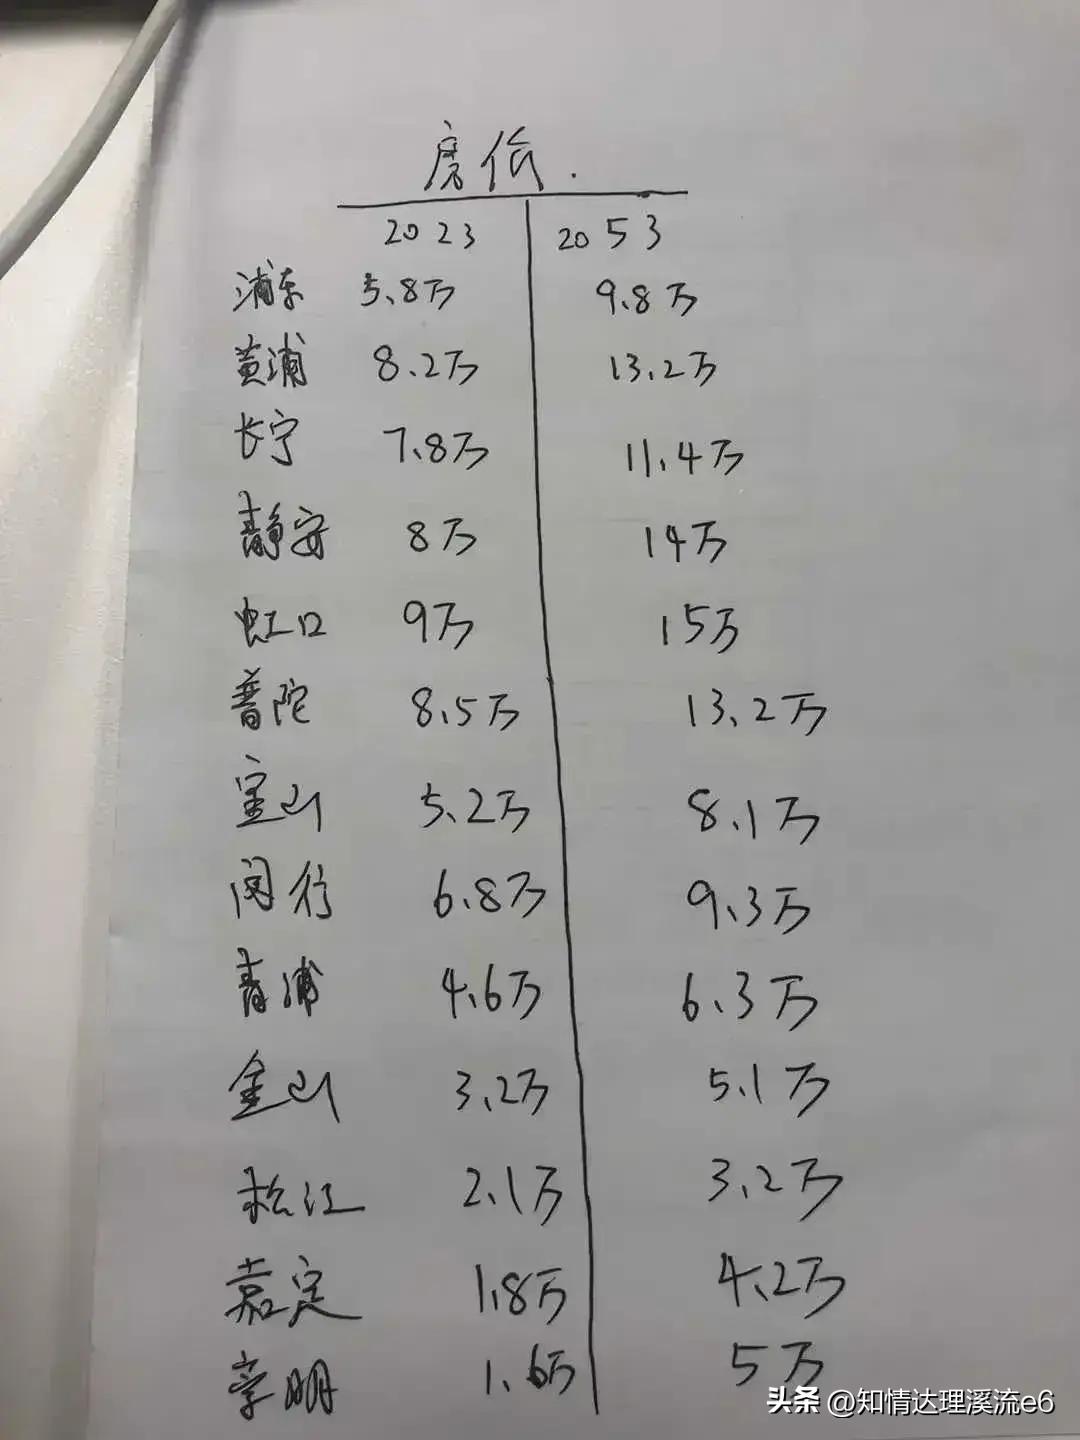 房价.
2023 2053
浦东 5.8万 9.8万
黄浦 8.2万 13.2万
长宁 7.8万 11.4万
静安 8万 14万
虹口 9万 15万
普陀 8.5万 13.2万
宝山 5.2万 8.1万
闵行 6.8万 9.3万
青浦 4.6万 6.3万
金山 3.2万 5.1万
松江 2.1万 3.2万
嘉定 1.8万 4.2万
崇明 1.6万 5万
头条 @知情达理溪流e6